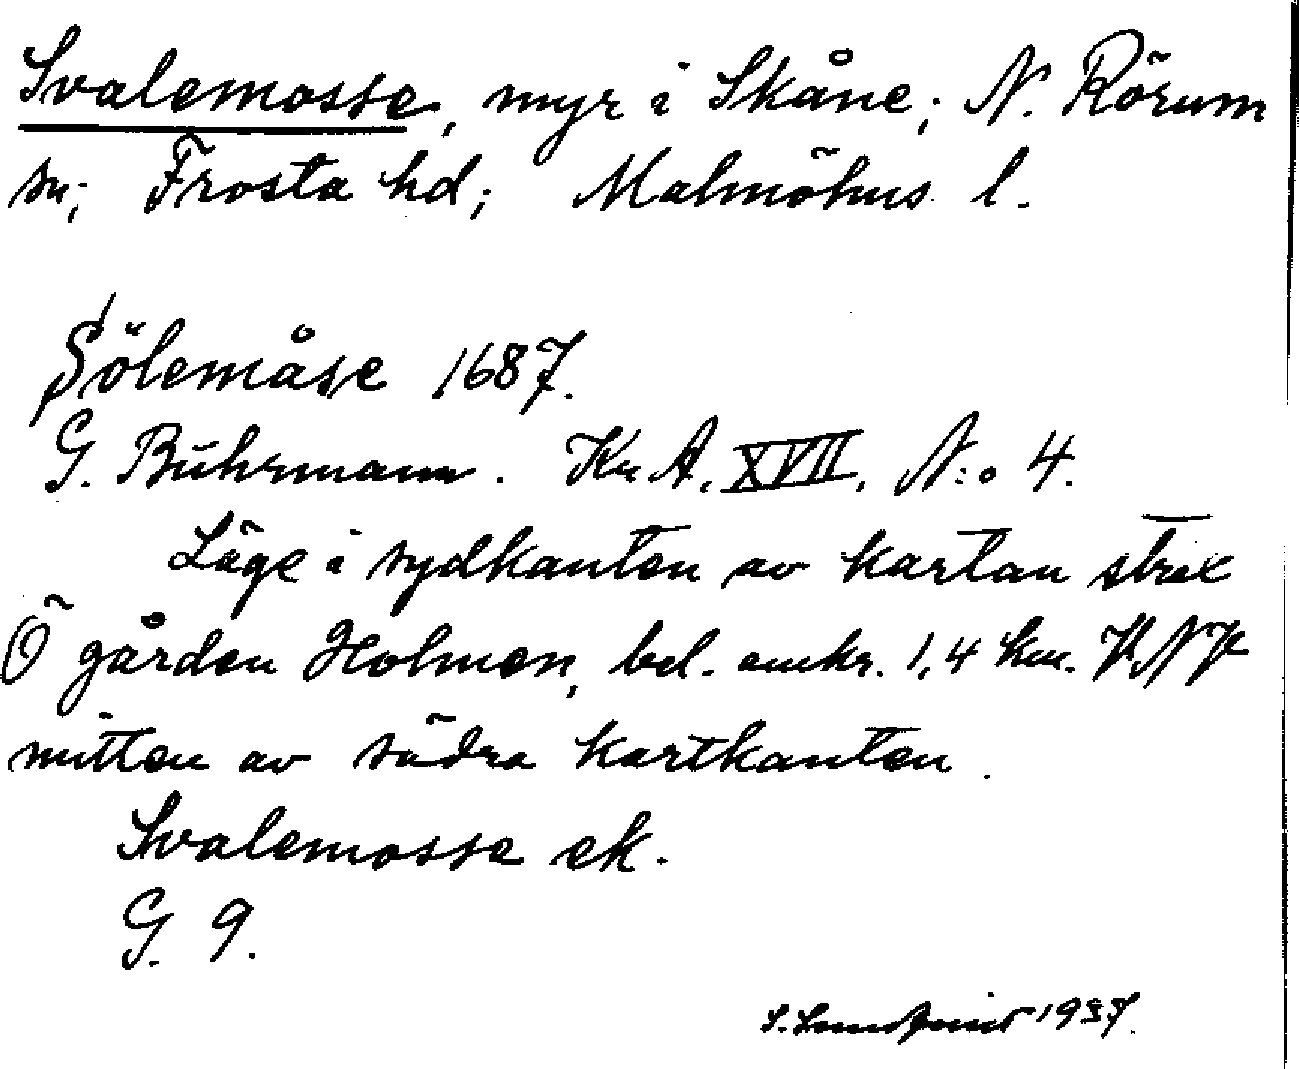 Svalemosse, myr i Skåne; N. Rörum
sn; Frosta hd; Malmöhus l.
Sölemåse 1687.
G. Buhrmann. Kr A. XVII. N:o 4.
Läge i sydkanten av kartan strax
Ö gården Holmen, bel. omkr. 1,4 km.
mitten av södra kartkanten.
Svalemosse ek.
G. 9.
1937.